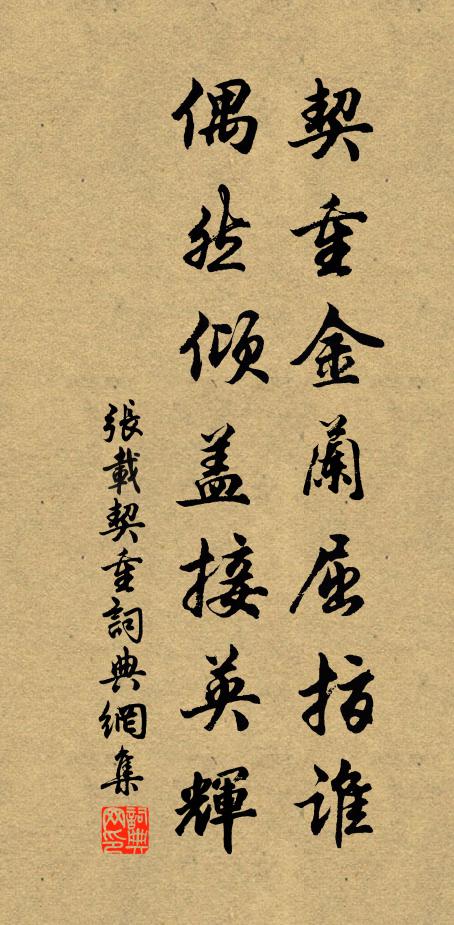 契重金蘭屈指誰
偶然傾盖接英輝
張載契重詞典網集
詞典
网印